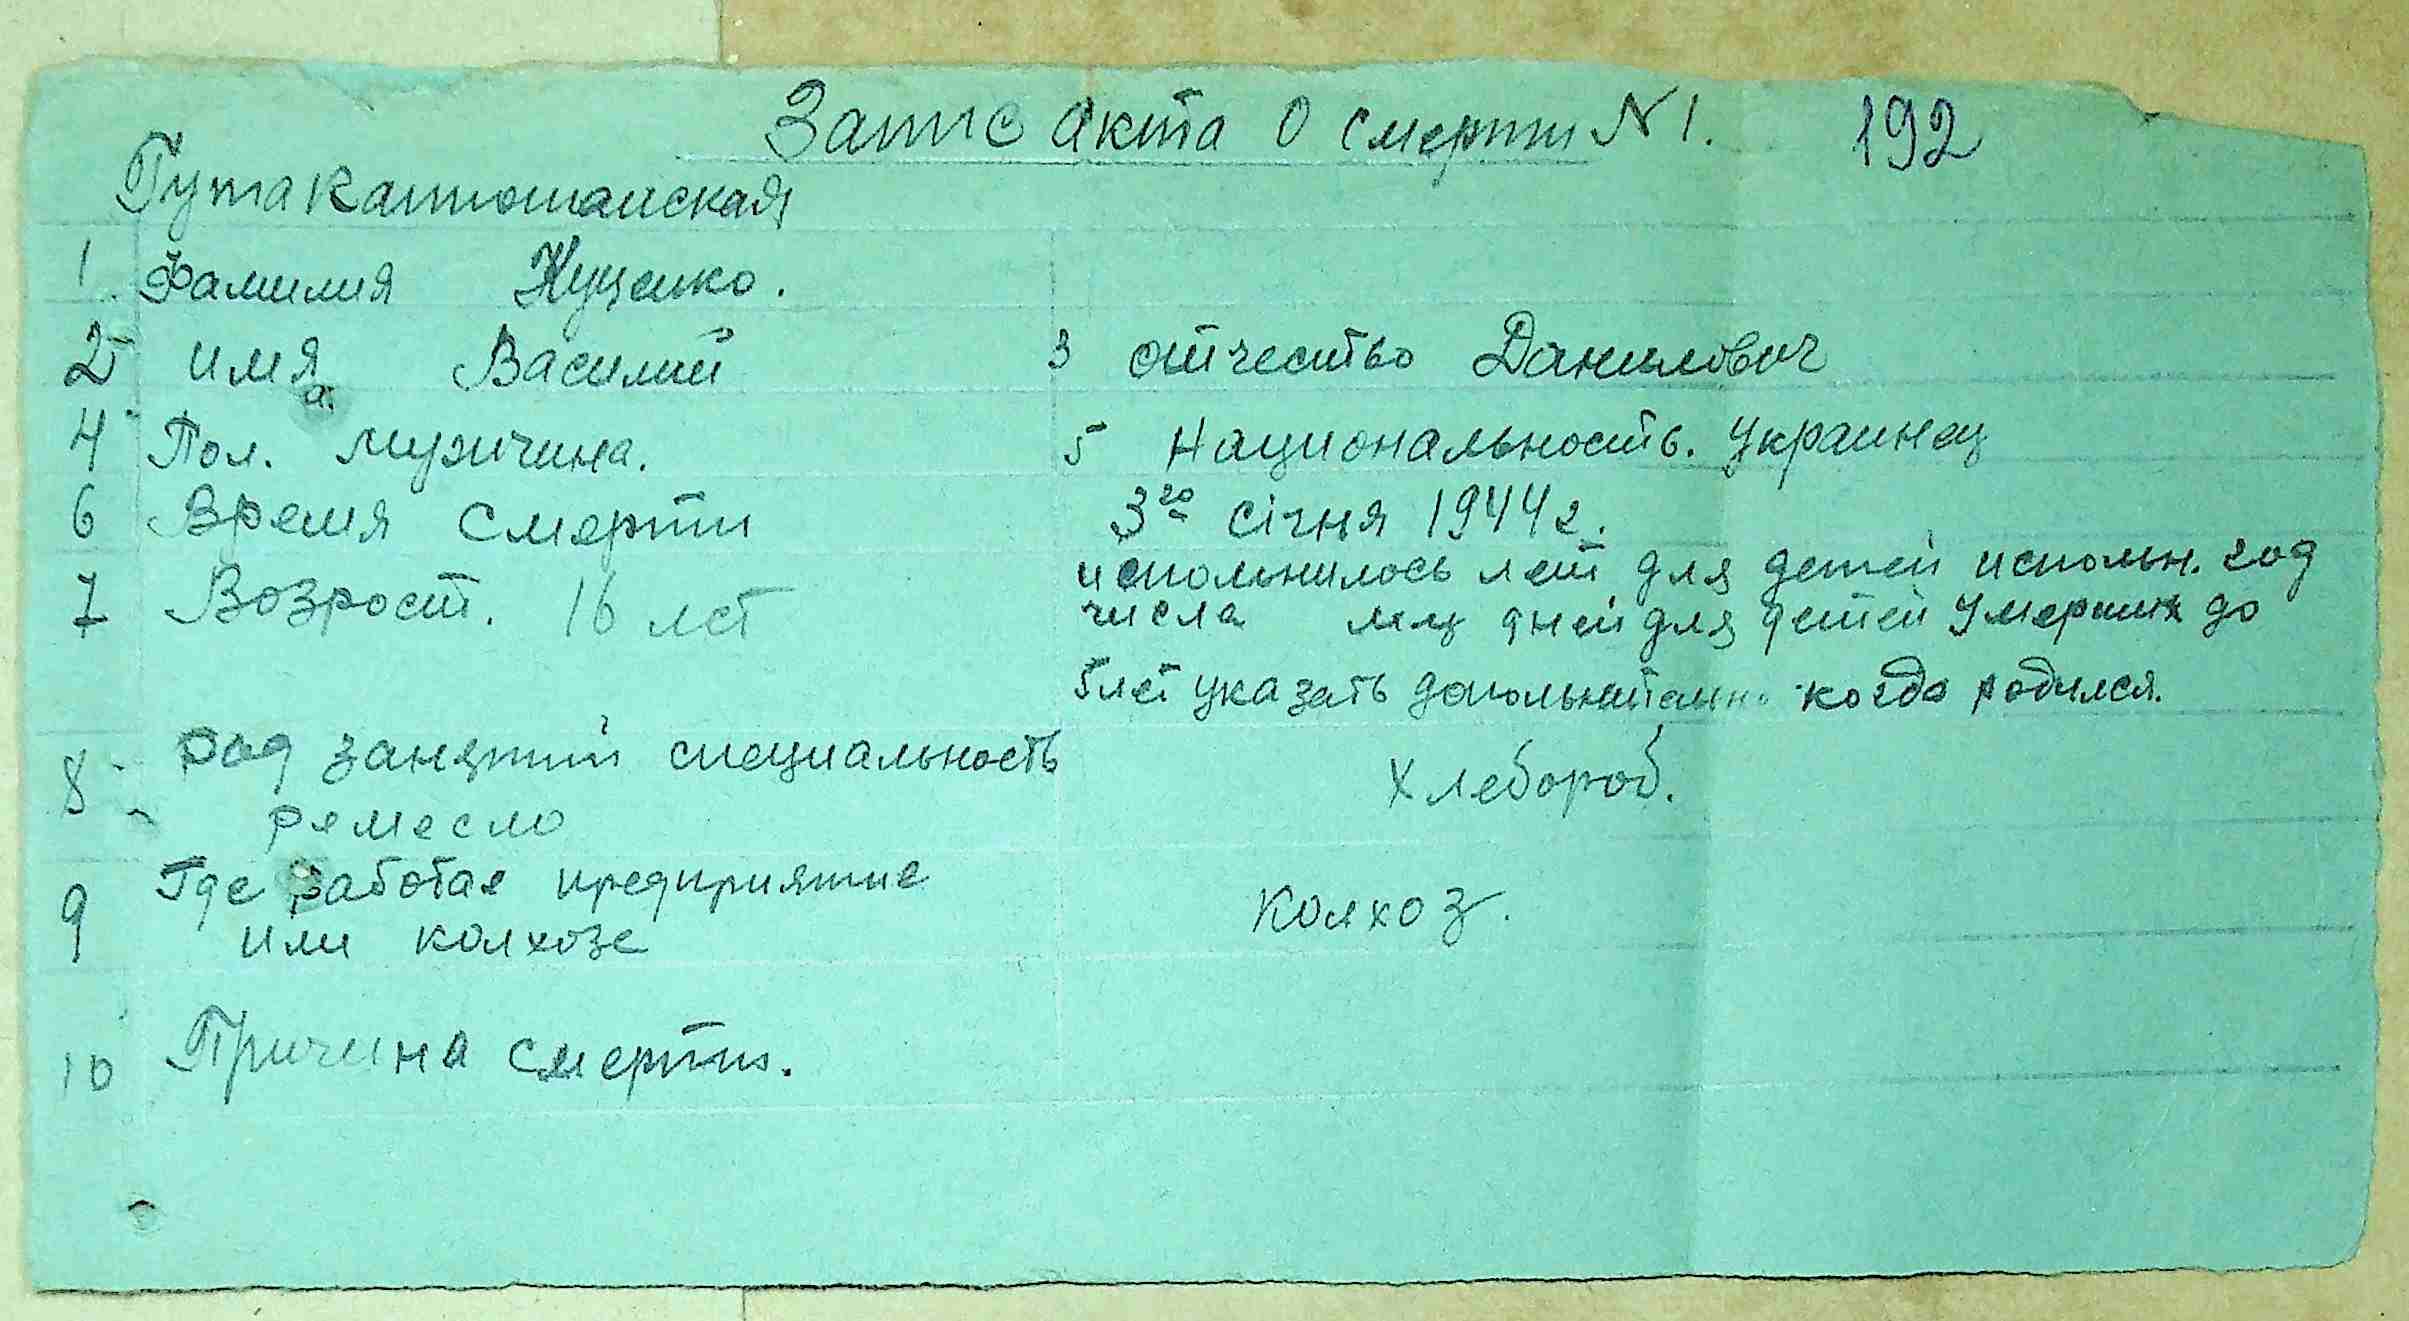 Запис акта о смерти N 1. 192
Гута Катюшанская
1. Фамилия Куценко.
2 имя Василий 3 отчество Данилович
4 Пол. мужчина. 5 Национальность. Украинец
6 Время смерти 3го січня 1944 г.
7 Возрост. 16 лет испольнилось лет для детей испольн. год
числа мц дней для детей умерших до
5 лет указать дополнительно когда родился.
8 род занятий специальность Хлебороб.
ремесло
9 Где работае предприятие Колхоз.
или колхозе
10 Причина смерти.